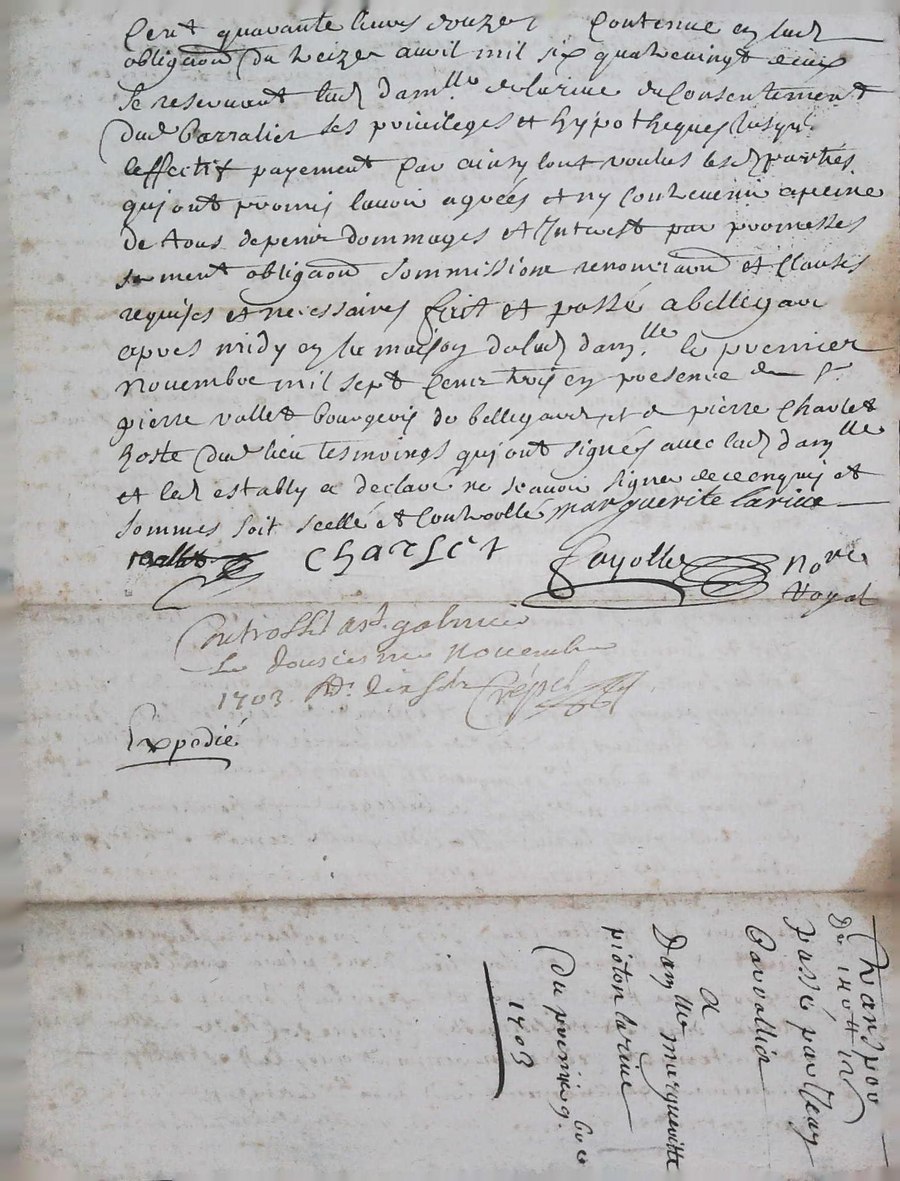 Cent quarante livres douze s contenue en lad
obligaõn du treize auril mil six quatreuingt deux
se reseruant lad dam.lle de larue du consentement
dud barralier ses priuileges et hypotheques jusqu
leffectif payement car ainsy lont voulus lesd parties
qui ont promis lauoir agrées et ny contreuenir a peine
de tous depens dommages et Interest par promesses
serment obligaõn soumissions renonciaõn et clauses
requises et necessaires fait et passé a bellegarde
apres midy en la maison de lad dam.lle le premier
nouembre mil sept cent trois en presence de s.r
pierre vallet bourgeois de bellegarde et de pierre Charlet
hoste dud lieu tesmoings qui ont signés auec lad dam.lle
et led estably a declaré ne scauoir signer de ce enquis et
sommes soit scellé et controllé marguerite larue
vallet Charlet Fayolle no.re
royal
Controllé a st galmier
le dousiesme nouembre
1703
Expedié
passé par
barrallier
a
Dam.lle margueritte
pioton larue
Du premier 9.bre
1703